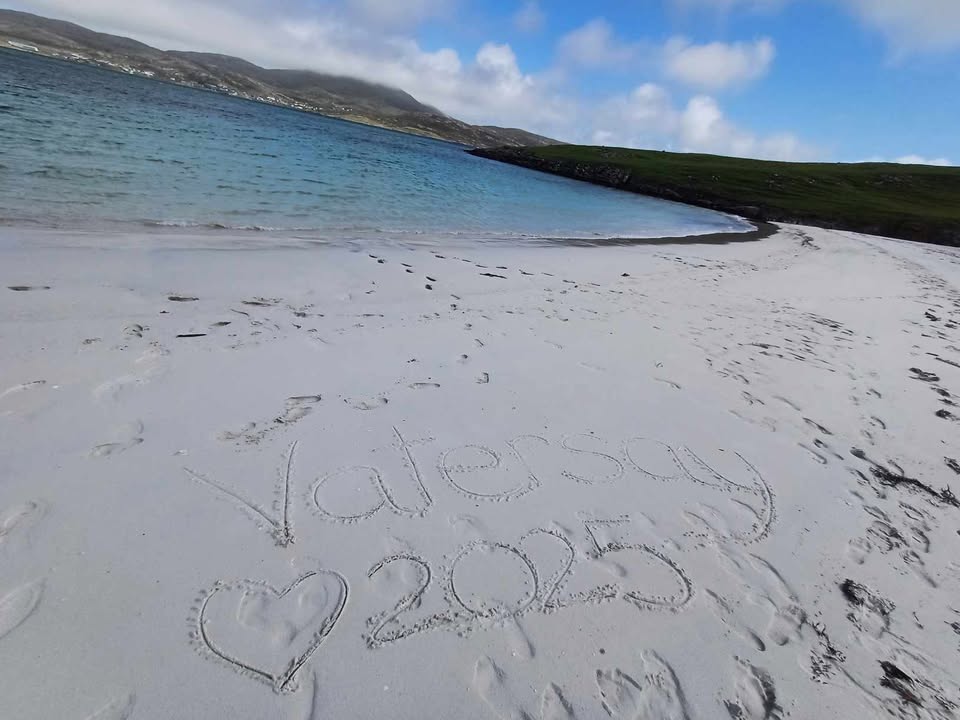 Vatersay
2025